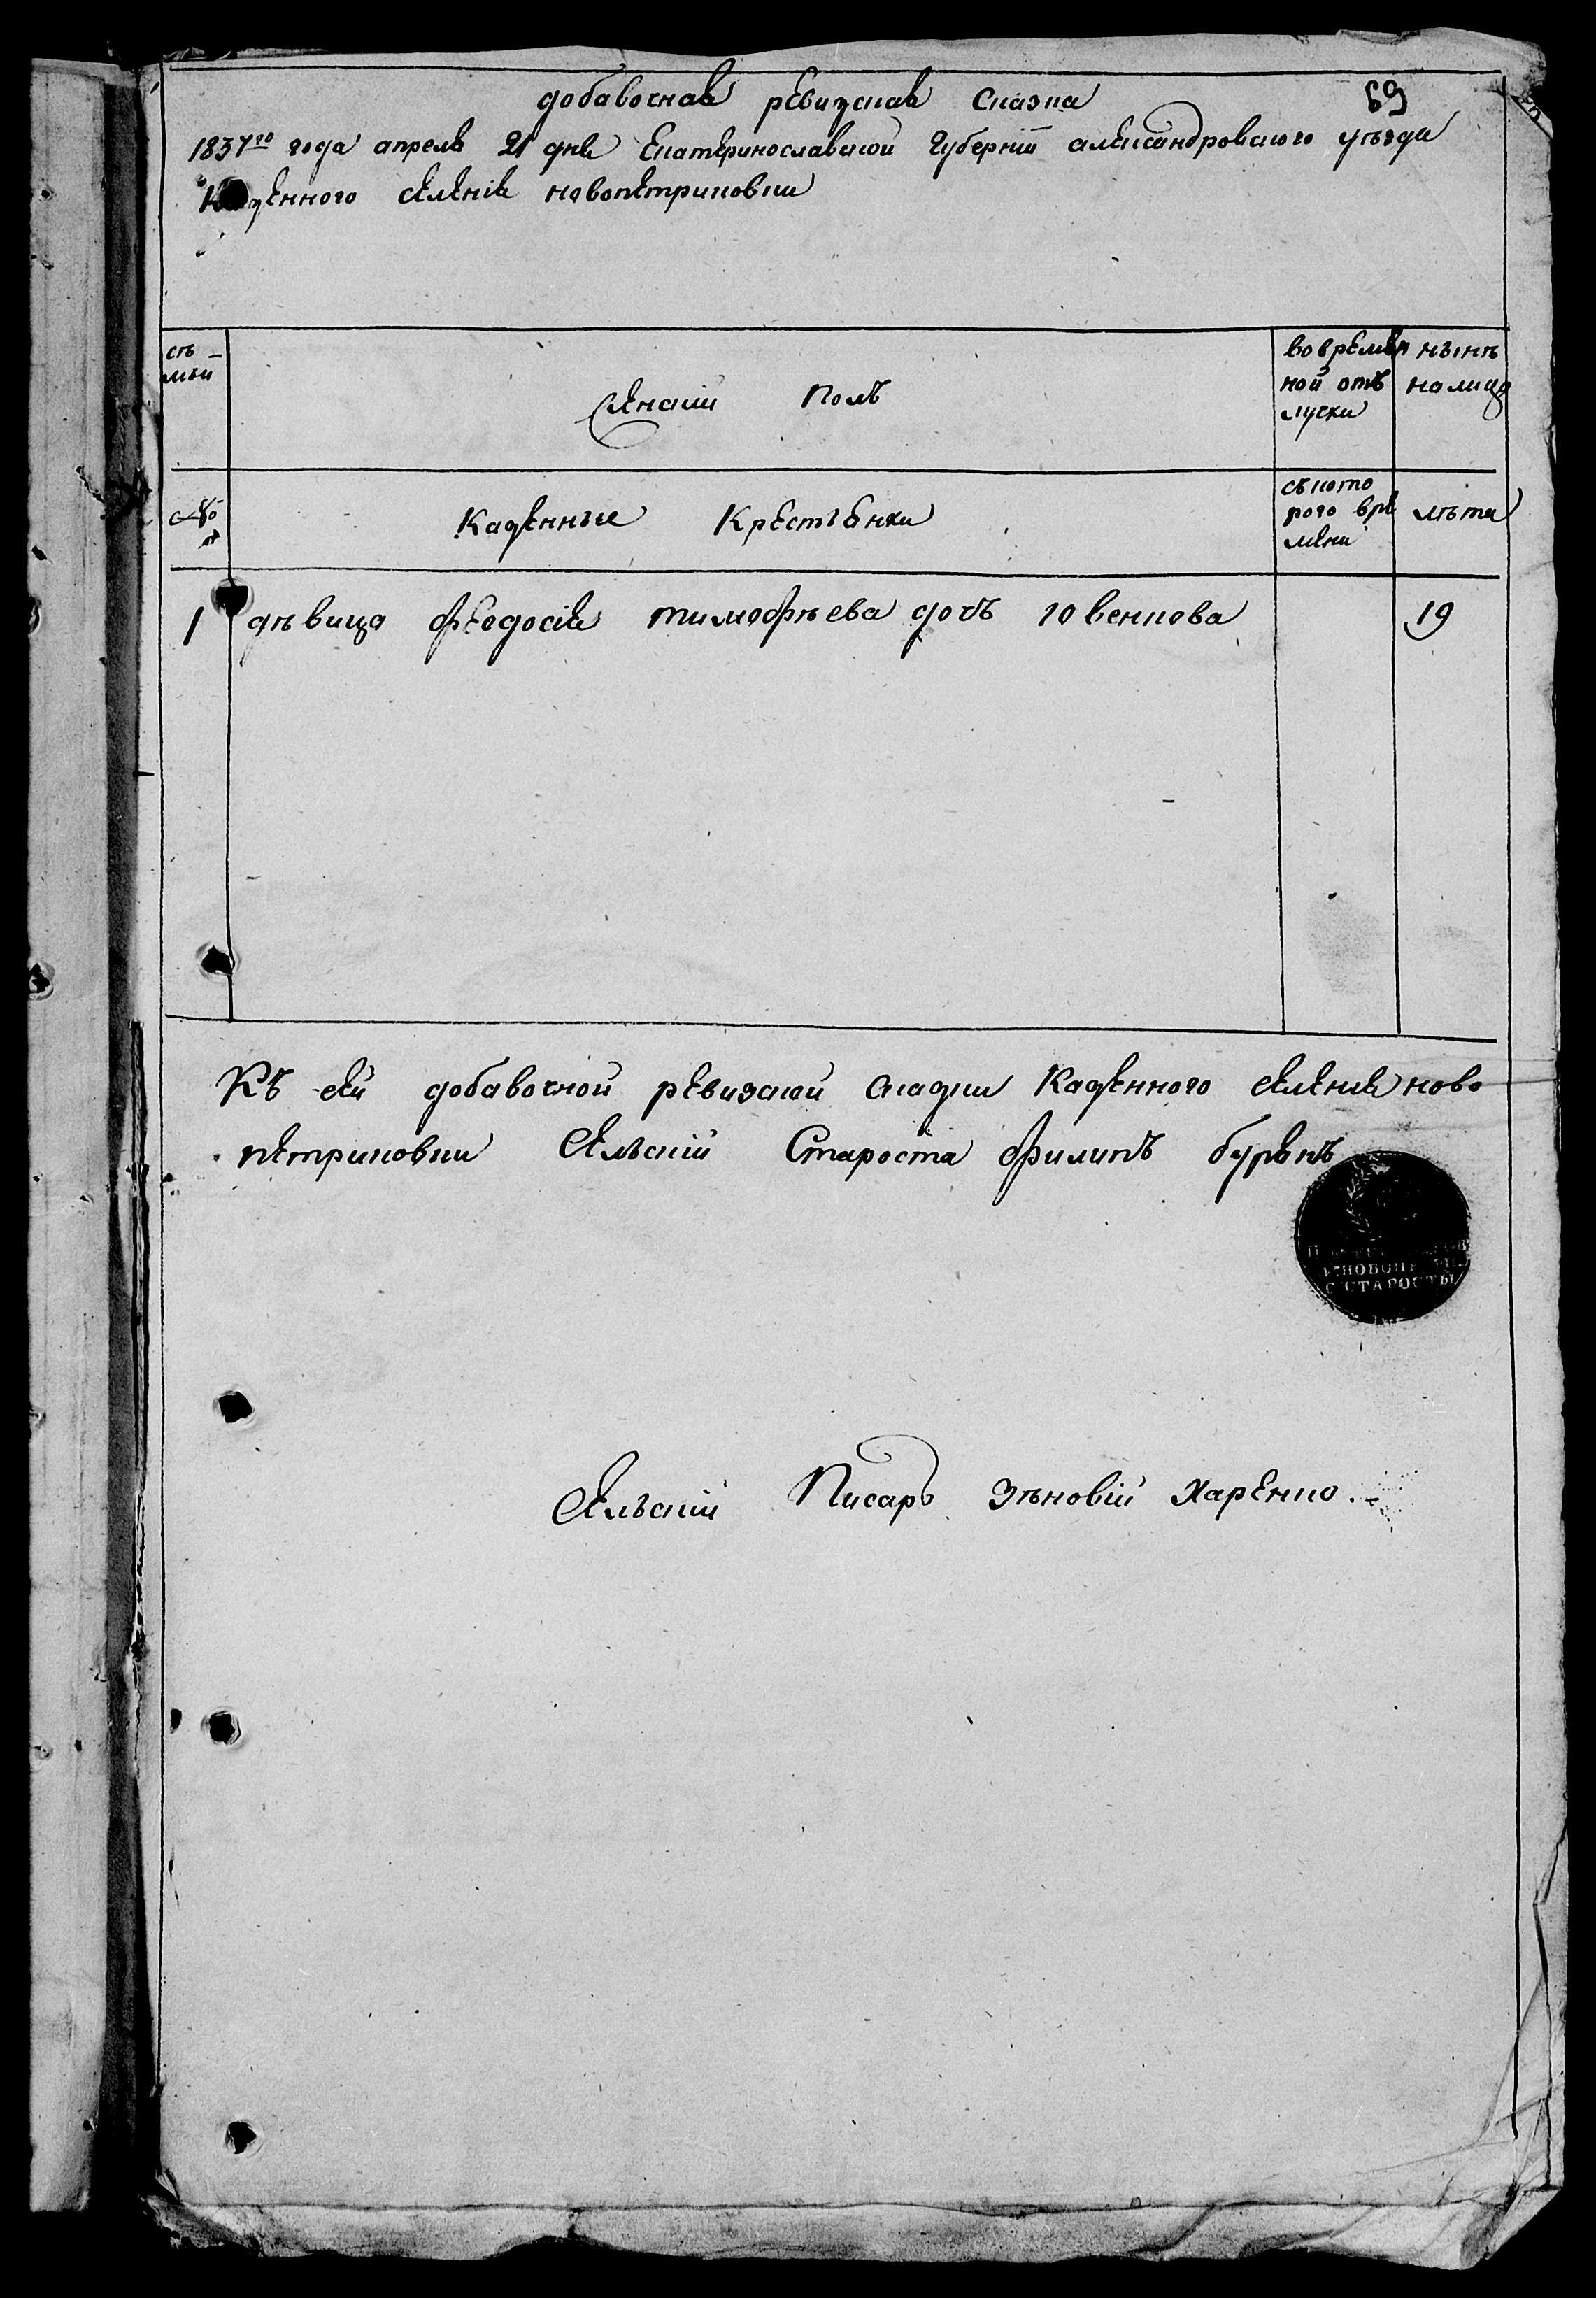 добавочная ревизская сказка 69
1837го года апреля 21 дня Екатеринославской губернiи александровского уѣзда
Казенного селенiя новопетриковки
сѣ-
мьи
женскiй полъ
во времен
ной отъ
лучки
нынѣ
налицо
№
Казенные Крестьянки
съ кото
рого вре
мени
лѣта
1 дѣвица феодосiя тимофѣева дочь 19
Къ сей добавочной ревизской сказки Казенного селения ново
петриковки Сельскiй Староста филипъ бурякъ
НОВОП
СТАРОСТЫ
Сельскiй Писарь зѣновiй харенко